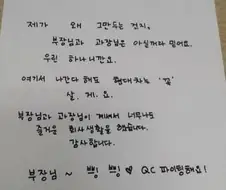 제가 왜 그만두는 건지,
부장님과 과장님은 아실꺼라 믿어요.
우린 하나니깐요.
여기서 나간다 해도 절대 '꼭'
살. 게. 요.
부장님과 과장님이 계셔서 너무나도
즐거운 회사생활을 했습니다.
감사합니다.
부장님 ~ 쁘잉 쁘잉 ♥ QC 파이팅해요!